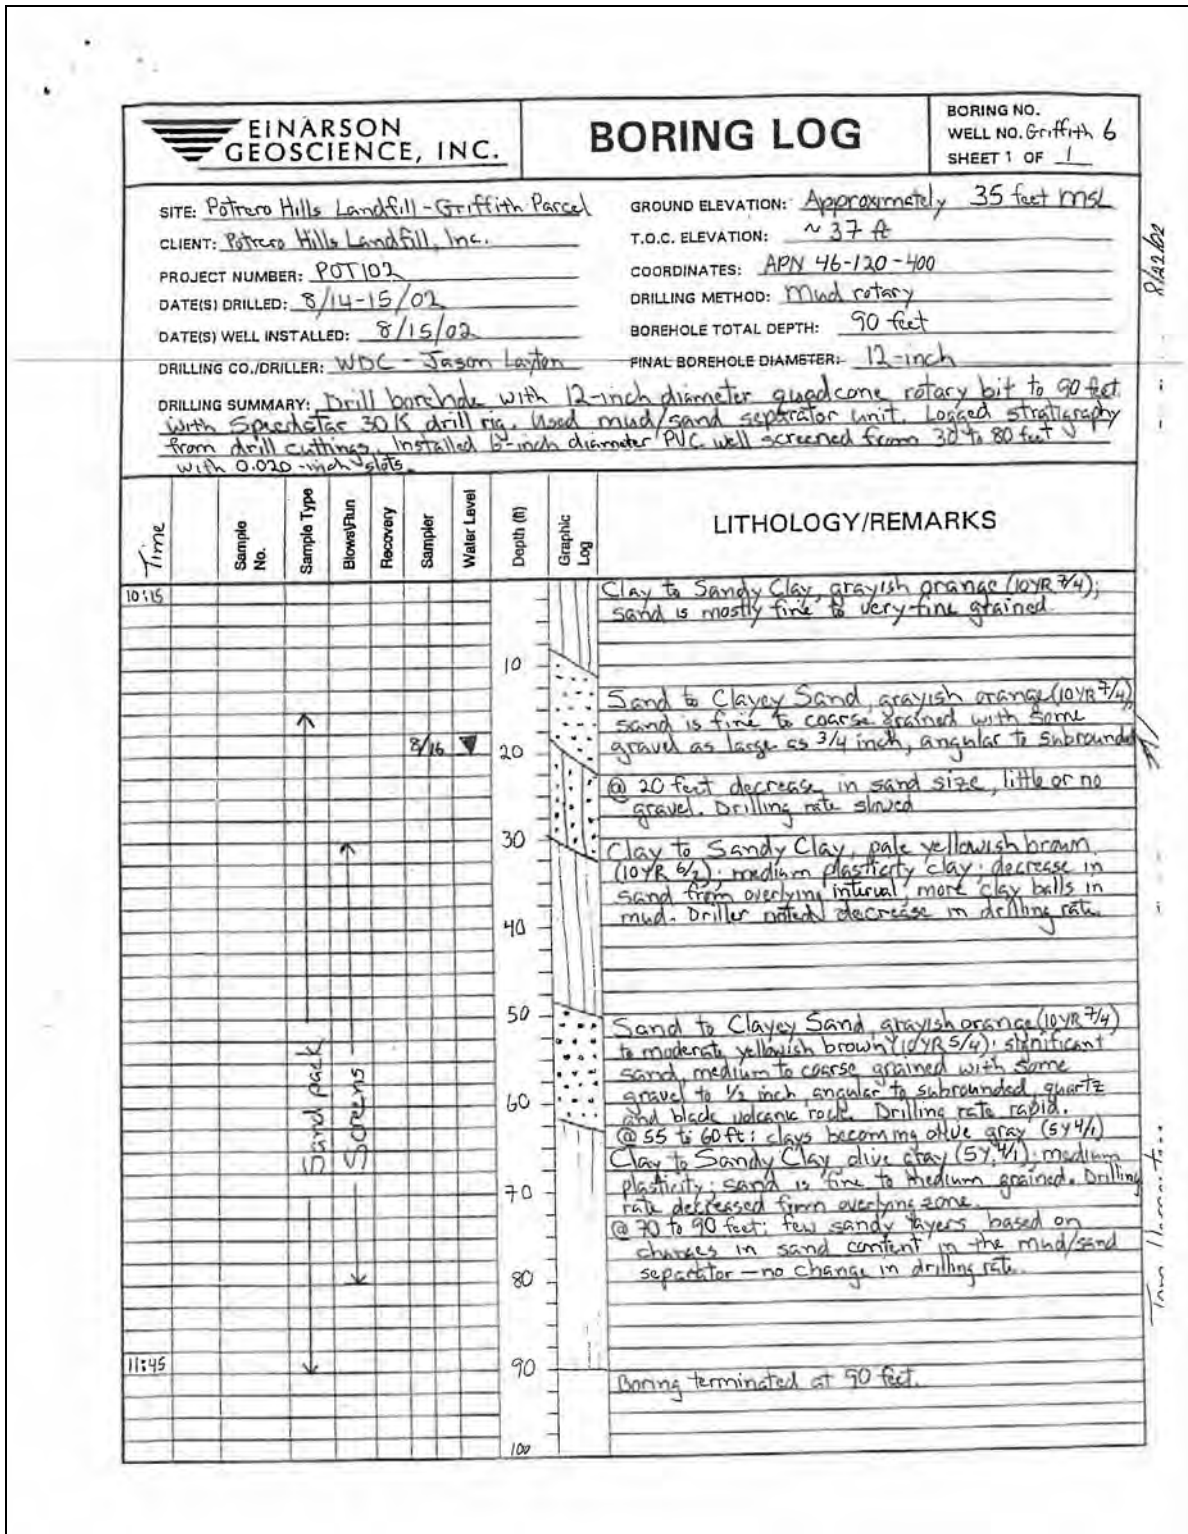 EINARSON
GEOSCIENCE, INC.
BORING LOG
BORING NO.
WELL NO. Griffith 6
SHEET 1 OF 1
SITE: Potrero Hills Landfill - Griffith Parcel
CLIENT: Potrero Hills Landfill, Inc.
PROJECT NUMBER: POT102
DATE(S) DRILLED: 8/14-15/02
DATE(S) WELL INSTALLED: 8/15/02
DRILLING CO./DRILLER: WDC - Jason Layton
GROUND ELEVATION: Approximately 35 feet msl
T.O.C. ELEVATION: ~ 37 ft
COORDINATES: APN 46-120-400
DRILLING METHOD: Mud rotary
BOREHOLE TOTAL DEPTH: 90 feet
FINAL BOREHOLE DIAMETER: 12-inch
DRILLING SUMMARY: Drill borehole with 12-inch diameter quadcone rotary bit to 90 feet
with Speedstar 30K drill rig. Used mud/sand separator unit. Logged stratigraphy
from drill cuttings. Installed 6-inch diameter PVC well screened from 30 to 80 feet
with 0.020-inch slots.
8/22/02
Time
Sample No.
Sample Type
Blows\Run
Recovery
Sampler
Water Level
Depth (ft)
Graphic Log
LITHOLOGY/REMARKS
10:15
Clay to Sandy Clay, grayish orange (10YR 7/4);
sand is mostly fine to very-fine grained.
10
Sand to Clayey Sand, grayish orange (10YR 7/4)
sand is fine to coarse grained with some
8/16
20
gravel as large as 3/4 inch, angular to subrounded
@ 20 feet decrease in sand size, little or no
gravel. Drilling rate slowed
30
Clay to Sandy Clay, pale yellowish brown
(10YR 6/2); medium plasticity clay; decrease in
sand from overlying interval, more clay balls in
mud. Driller noted decrease in drilling rate.
40
50
Sand to Clayey Sand, grayish orange (10YR 7/4)
to moderate yellowish brown (10YR 5/4); significant
sand, medium to coarse grained with some
gravel to 1/2 inch, angular to subrounded, quartz
60
and black volcanic rock. Drilling rate rapid.
@ 55 to 60ft: clays becoming olive gray (5Y 4/1)
Sand pack
Screens
Clay to Sandy Clay olive gray (5Y, 4/1); medium
plasticity; sand is fine to medium grained. Drilling
70
rate decreased from overlying zone.
@ 70 to 90 feet: few sandy layers based on
changes in sand content in the mud/sand
80
separator — no change in drilling rate.
11:45
90
Boring terminated at 90 feet.
100